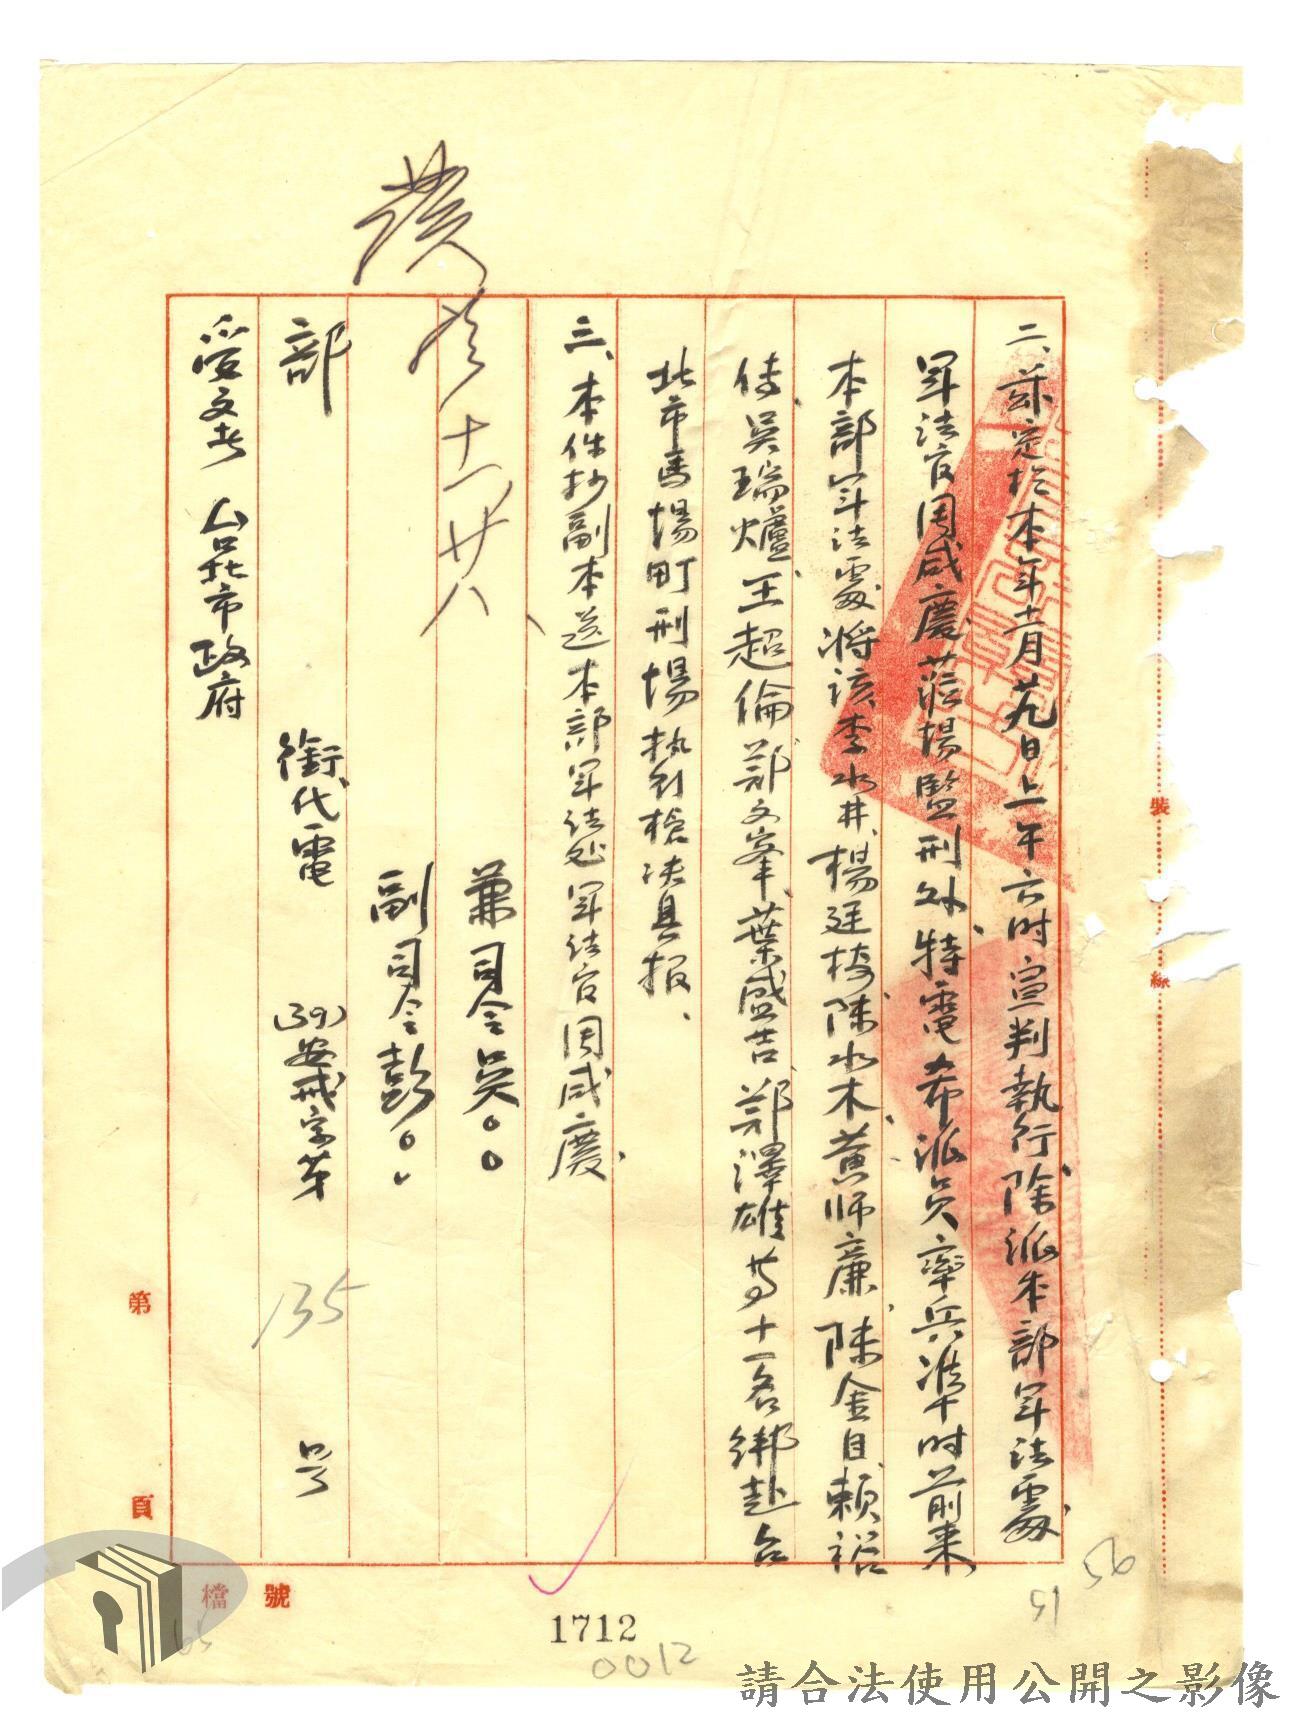 二、茲定於本年十一月廿九日上午六时宣判執行除派本部軍法處
軍法官周咸慶蒞場監刑外特電希派員率兵准午时前来
本部軍法處將該李水井、楊廷椅、陳水木、黃師廉、陳金目、賴裕
传、吳瑞爐、王超倫、鄭文峯、葉盛吉、鄭澤雄等十一名綁赴台
北市馬場町刑場执行槍决具报、
三、本件抄副本送本部軍法处軍法官周咸慶
兼司令吳○○
副司令彭○○
十一、廿八、
部 銜代電 (39)安戒字第 135 号
受文者 台北市政府
裝
線
第
頁
檔 號
56
51
65
1712
0012
請合法使用公開之影像